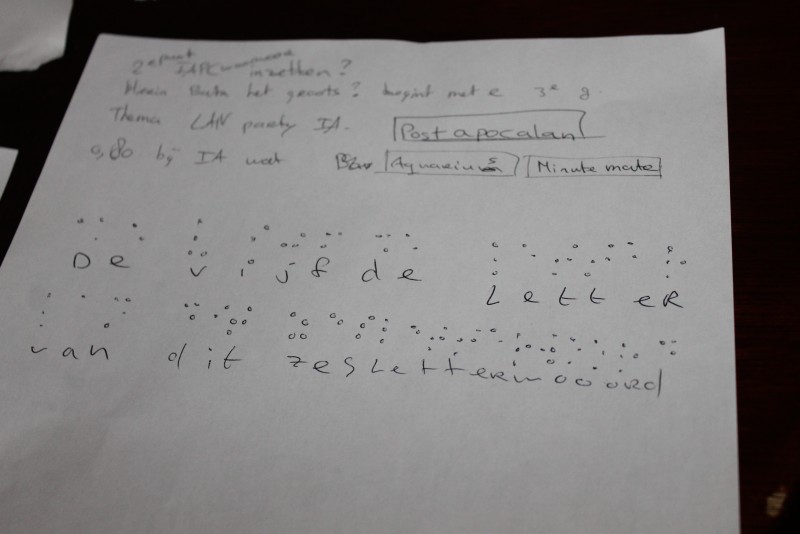 inzetten?
het geoots? begint met e 3e g
Thema LAN party IA. Post apocalan
0,80 bij IA weet Aquarius Minute mate
De vijfde Letter
van dit zesLetterwoord